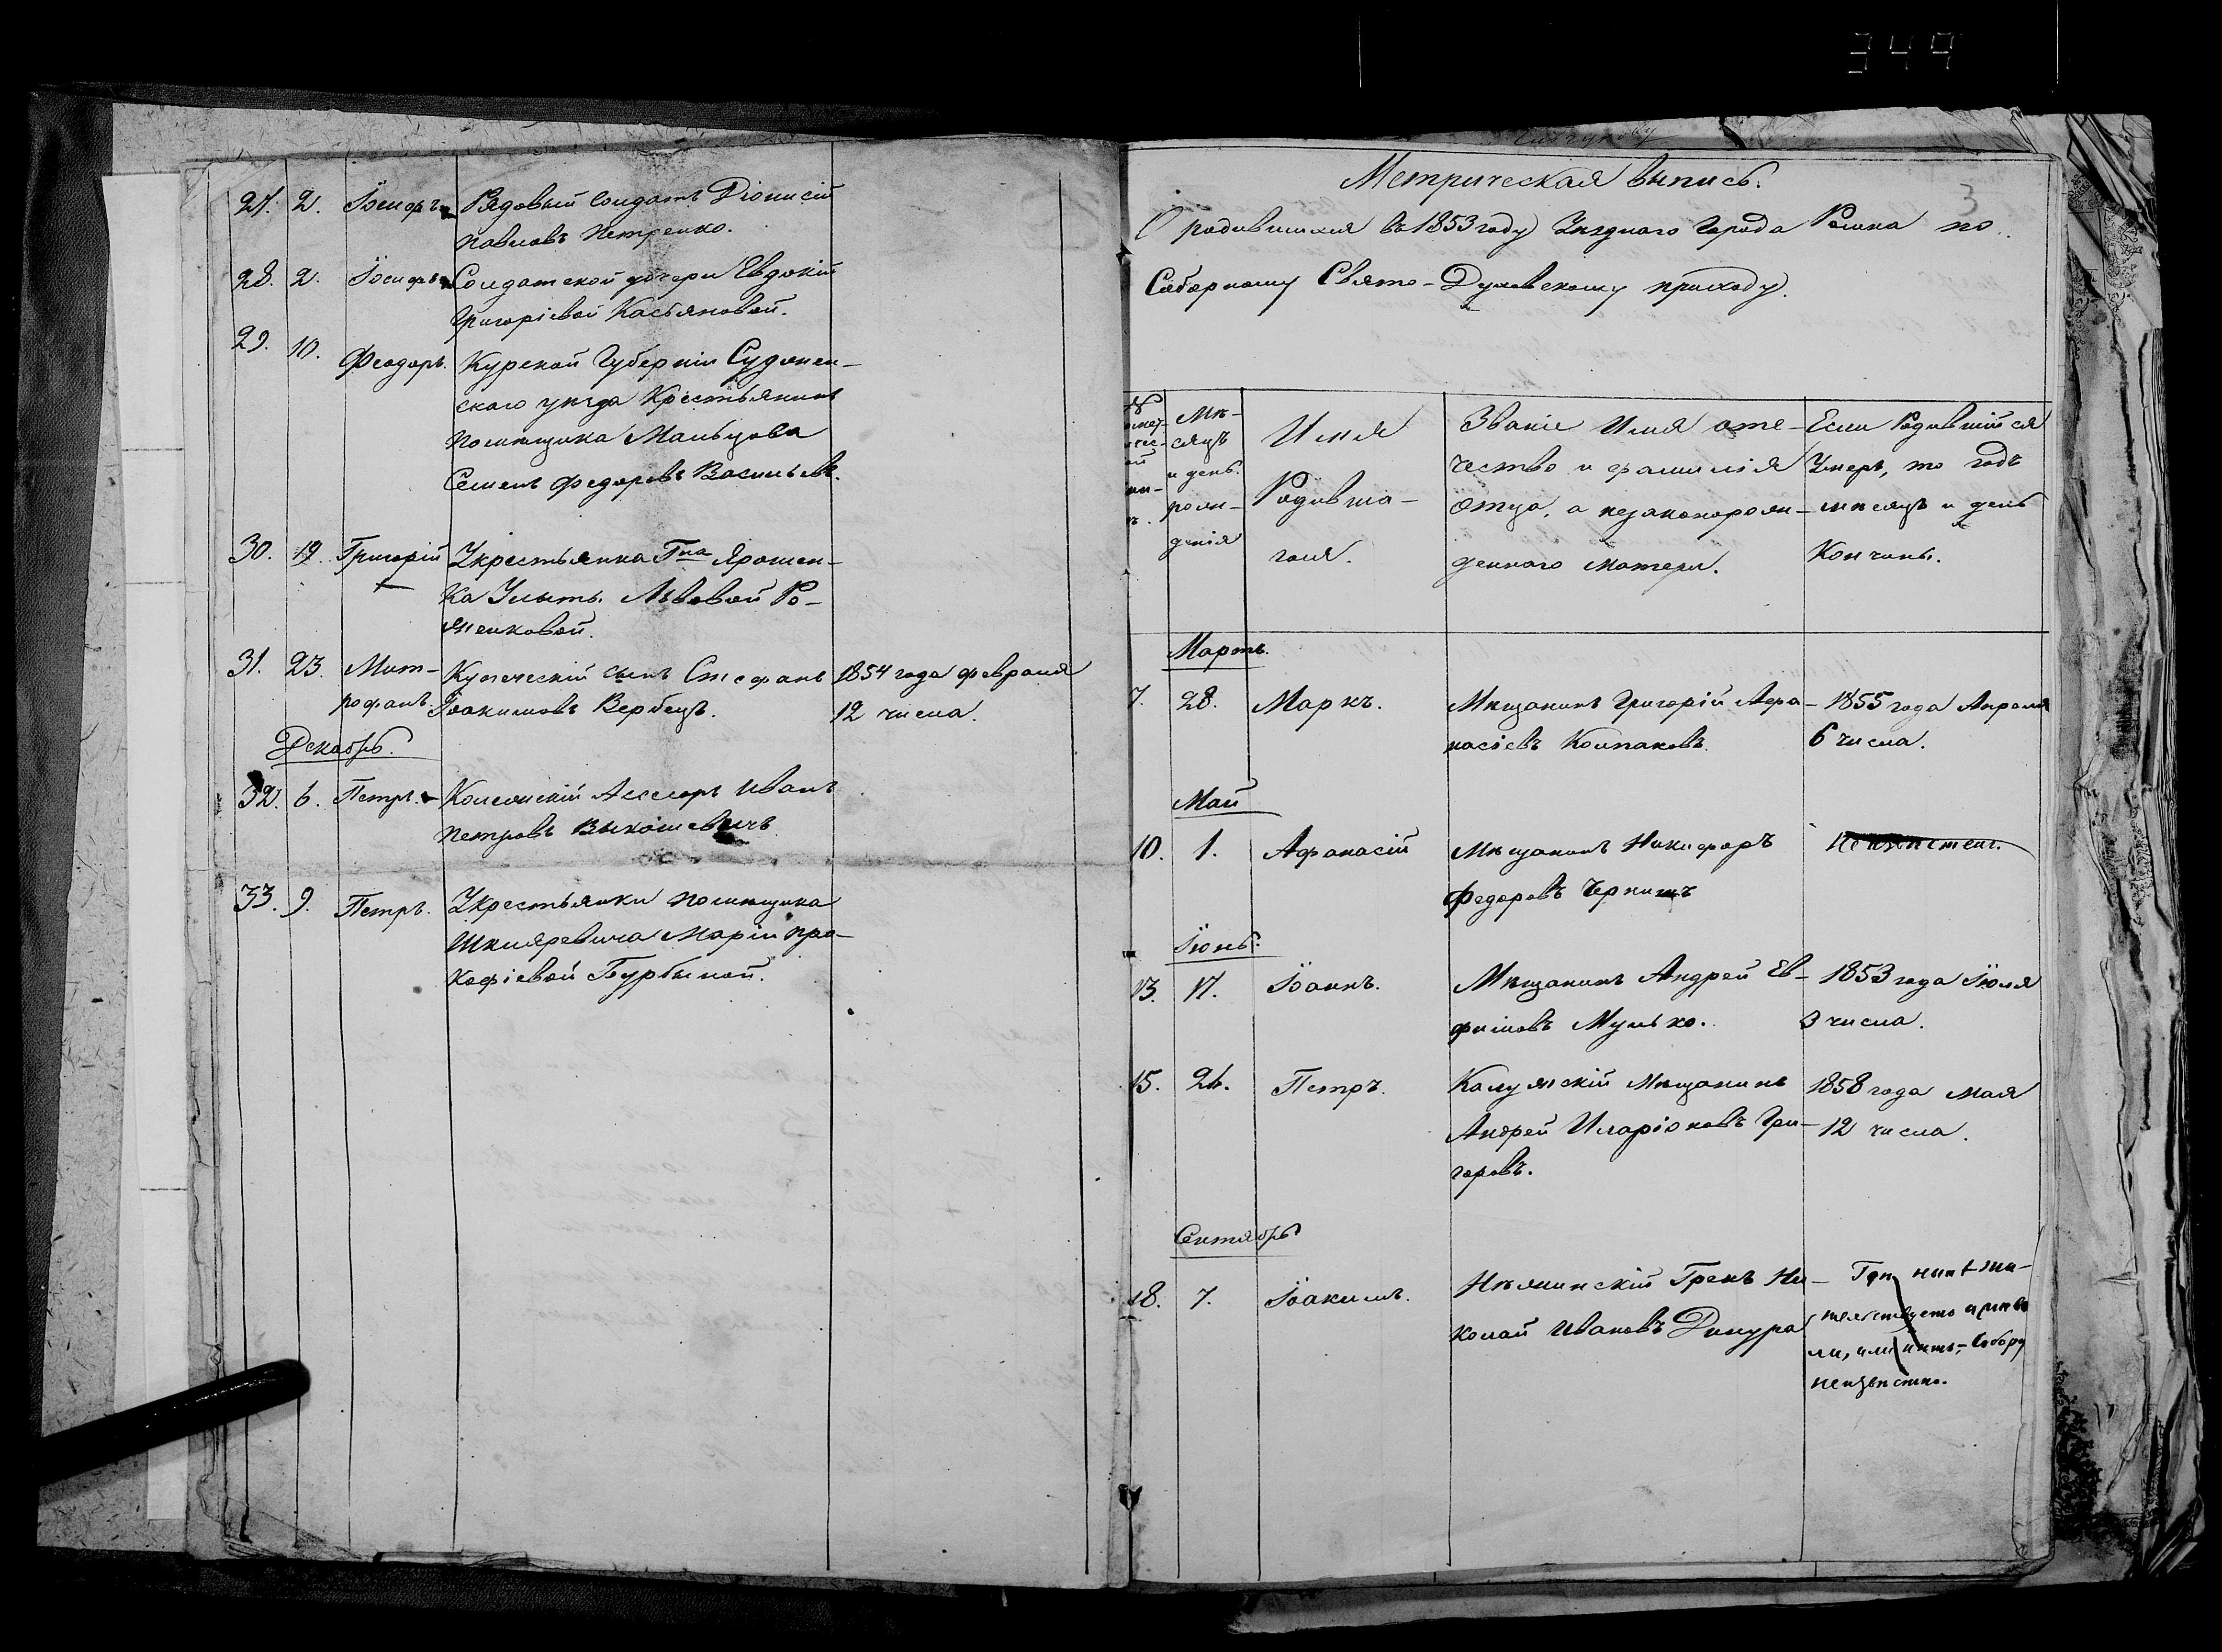 349
27. 2. Іосифъ Рядовый Солдатъ Діонисій
Павловъ Петренко.
28. 2. Іосифъ Солдатской дочери Евдокіи
Григоріевой Касьяновой.
29. 10. Феодоръ. Курской Губерніи Суджен-
скаго уѣзда Крестьянинъ
помѣщика Мальцова
Семенъ Федоровъ Васильевъ.
30. 19. Григорій У крестьянки Гна Ярошен-
ка Улыты Львовой Ро-
менковой.
31. 23. Мит- Купеческій сынъ Стефанъ 1854 года февраля
рофанъ. Іоакимовъ Вербецъ. 12 числа.
Декабрь.
32. 6. Петръ. Колежскій Ассесоръ Иванъ
Петровъ
33. 9. Петръ. У крестьянки помѣщика
Шкляревича Маріи Про-
кофіевой Бурбыной.
3
Метрическая выпись.
О родившихся въ 1853 году Уѣзднаго Города Ромна по
Соборному Свято-Духовскому приходу.
Мѣ-
сяцъ
и день
рож-
денія
Имя
Родивша-
гося.
Званіе Имя оте-
чество и фамилія
Отца, а незаконорож-
деннаго матери.
Если Родившійся
Умеръ, то годъ
мѣсяцъ и день
Кончины.
Мартъ.
7. 28. Маркъ. Мѣщанинъ Григорій Афа- 1855 года Апрѣля
насіевъ Колпаковъ. 6 числа.
Май
10. 1. Афанасій Мѣщанинъ Никифоръ Неизвѣстенъ.
Федоровъ Чернишъ
Іюнь.
13. 17. Іоаннъ. Мѣщанинъ Андрей Ев- 1853 года Іюля
фимовъ Мулько. 3 числа.
15. 24. Петръ. Калужскій Мѣщанинъ 1858 года Мая
Андрей Иларіоновъ Гри- 12 числа.
горовъ.
Сентябрь
18. 7. Іоакимъ. Нѣжинскій Грекъ Ни- Гдѣ нынѣ жи-
колай Ивановъ Дикура тельствуетъ и живъ
ли, или нѣтъ,- Собору
неизвѣстно.